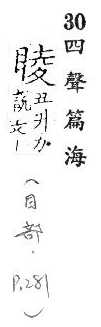 30四聲篇海
睖丑升切
說文一
(目部.
P.281)